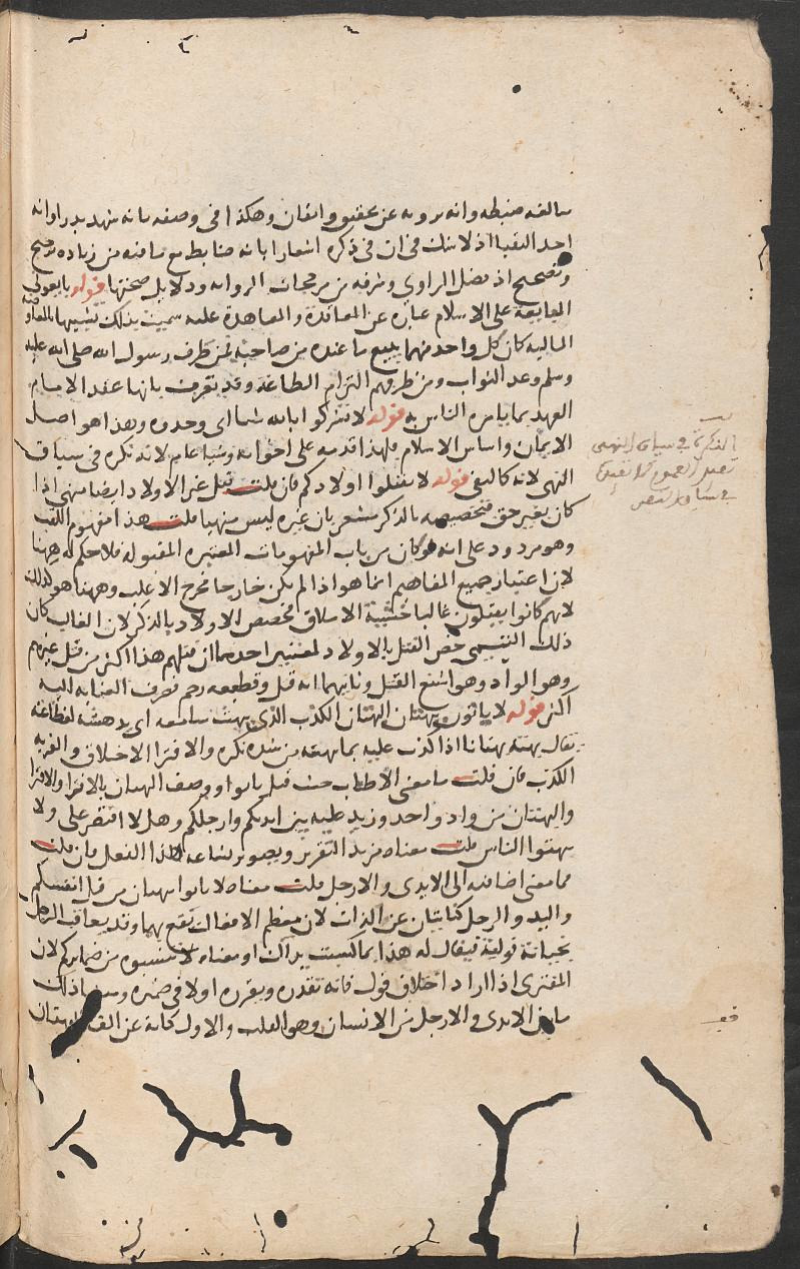 سالفه ضبطه وانه يرويه عن تحقيق واتقان وهكذا في وصفه بانه شهد بدرا وانه
احد النقبا اذ لا شك في ان في ذكره اشعارا بانه ضابط مع ما فيه من زيادة ترجيح
وتصحيح اذ فضل الراوي وشرفه من مرجحات الرواية ودلايل صحتها قوله بايعوني
المبايعة على الاسلام عبارة عن المعاقدة والمعاهدة عليه سميت بذلك تشبيها بالمعاوضة
المالية كان كل واحد منهما يبيع ما عنده من صاحبه فمن طرف رسول الله صلى الله عليه
وسلم وعد الثواب ومن طرفهم التزام الطاعة وقد تعرف بانها عقد الامام
العهد بما يامره الناس به قوله لا تشركوا بالله شيا اي وحدوه وهذا هو اصل
الايمان واساس الاسلام فلهذا قدمه على اخواته وشيا عام لانه نكرة في سياق
النهي لانه كالنفي قوله لا تقتلوا اولادكم فان قلت قتل غير الاولاد ايضا منهي اذا
كان بغير حق فتخصيصه بالذكر مشعر بان غيره ليس منهيا قلت هذا مفهوم اللقب
وهو مردود على انه لو كان من باب المفهومات المعتبرة المقبولة فلا حكم له ههنا
لان اعتبار جميع المفاهيم انما هو اذا لم يكن خارجا مخرج الاغلب وههنا هو كذلك
لانهم كانوا يقتلون غالبا خشية الاملاق فخصص الاولاد بالذكر لان الغالب كان
ذلك التيمي خص القتل بالاولاد لمعنيين احدهما ان قتلهم هذا اكثر من قتل غيرهم
وهو الواد وهو اشنع القتل وثانيهما انه قتل وقطيعة رحم فصرف العناية اليه
اكثر قوله لا ياتون ببهتان البهتان الكذب الذي يبهت سامعه اي يدهشه لفظاعته
يقال بهته بهتانا اذا كذب عليه بما يبهته من شدة نكره والافترا الاختلاق والفرية
الكذب فان قلت ما معنى الاطناب حيث قيل تاتوا ووصف البهتان بالافترا والافترا
والبهتان من واد واحد وزيد عليه بين ايديكم وارجلكم وهلا اقتصر على ولا
يبهتوا الناس قلت معناه مزيد التقرير وتصوير بشاعة هذا الفعل فان قلت
فما معنى اضافته الى الايدي والارجل قلت معناه لا تاتوا ببهتان من قبل انفسكم
واليد والرجل كنايتان عن الذات لان معظم الافعال تقع بهما وقد يعاقب الرجل
بجناية قولية فيقال له هذا بما كسبت يداك او معناه لا تنشوه من ضمايركم لان
المفتري اذا اراد اختلاق قول فانه يقدره ويقرره اولا في ضميره ومنشا ذلك
ما بين الايدي والارجل من الانسان وهو القلب والاول كناية عن القا البهتان
النكرة في سياق النهي
تفيد العموم كما تفيد
في سياق النفي